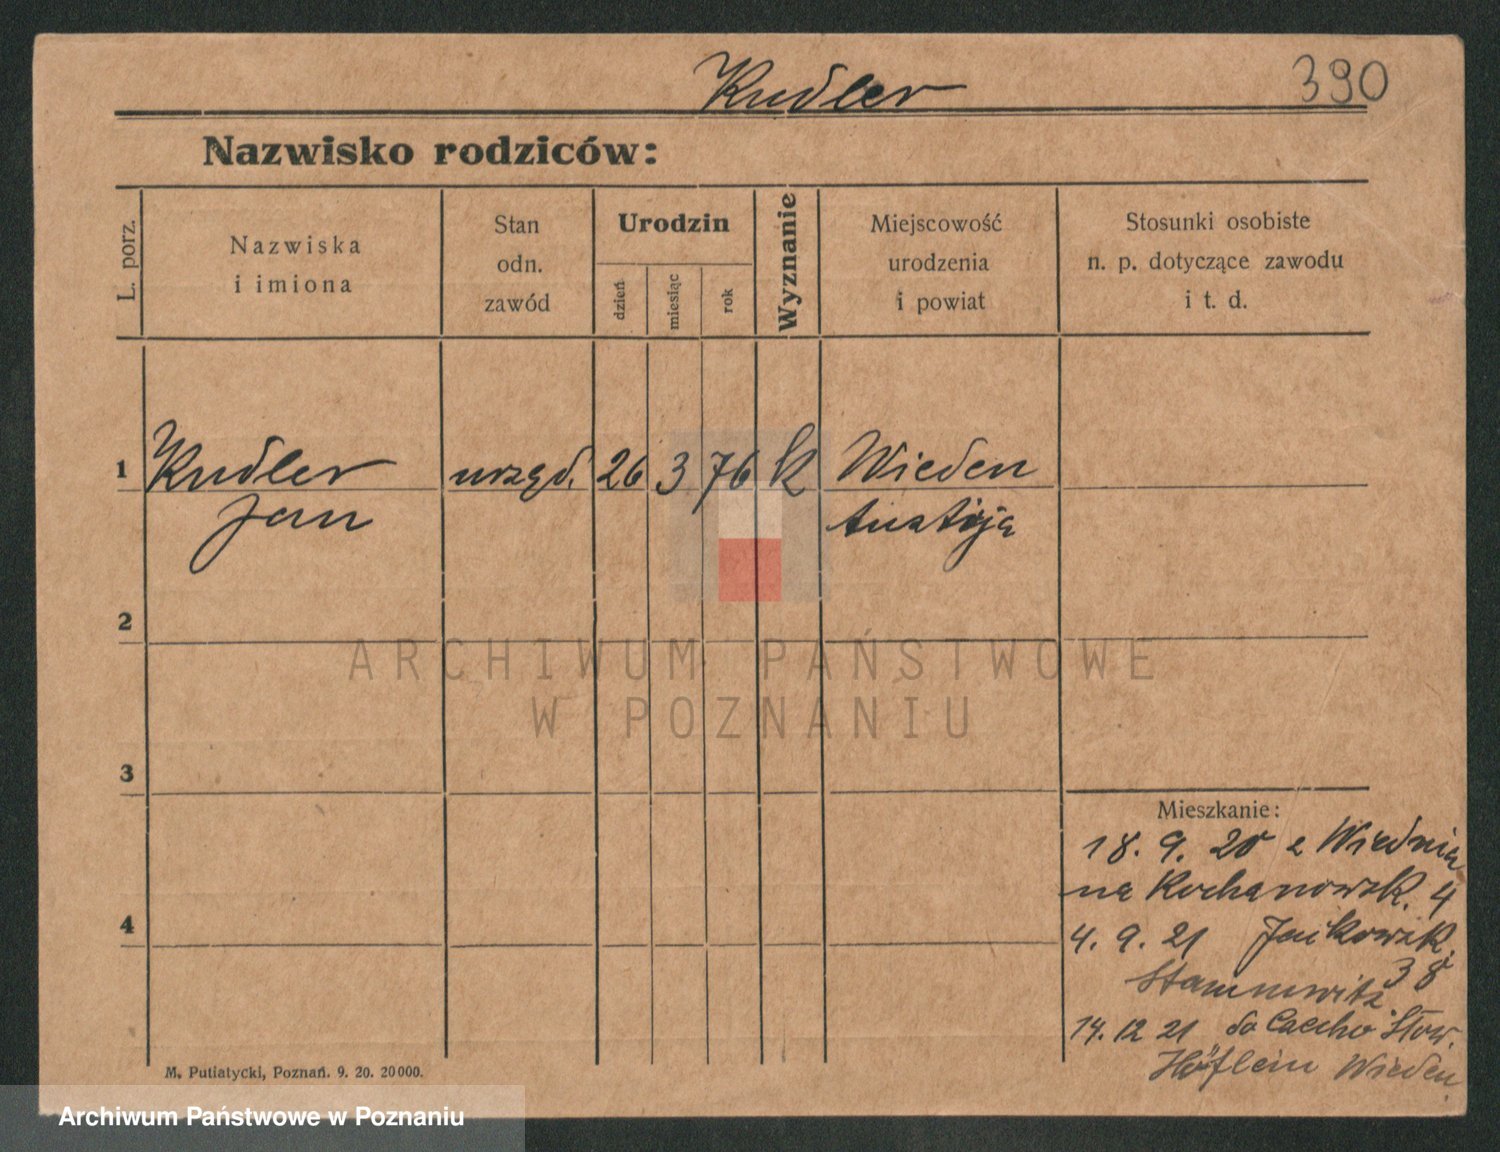 Kudler
390
Nazwisko rodziców:
L. porz.
Nazwiska
i imiona
Stan
odn.
zawód
Urodzin
dzień
miesiąc
rok
Wyznanie
Miejscowość
urodzenia
i powiat
Stosunki osobiste
n. p. dotyczące zawodu
i t. d.
1 Kudler urzęd. 26 3 76 k Wieden
Jan Austrja
2
3
4
Mieszkanie:
18. 9. 20 z Wiednia
na Kochanowsk. 4
4. 9. 21
38
14. 12 21 do Czecho Słow.
Höflein Wieden
M. Putiatycki, Poznań. 9. 20. 20000.
ARCHIWUM PAŃSTWOWE
W POZNANIU
Archiwum Państwowe w Poznaniu